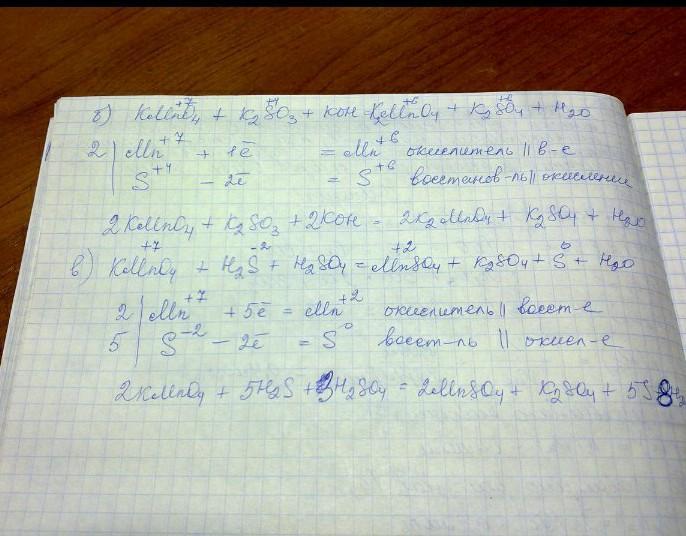 б) KMnO4 + K2SO3 + KOH = K2MnO4 + K2SO4 + H2O
+7 +4 +6 +6
2 | Mn+7 + 1ē = Mn+6 окислитель || в-е
S+4 - 2ē = S+6 восстанов-ль || окисление
2KMnO4 + K2SO3 + 2KOH = 2K2MnO4 + K2SO4 + H2O
+7 -2 +2 0
в) KMnO4 + H2S + H2SO4 = MnSO4 + K2SO4 + S + H2O
2 | Mn+7 + 5ē = Mn+2 окислитель || восст-е
5 | S-2 - 2ē = S0 восст-ль || окисл-е
2KMnO4 + 5H2S + 3H2SO4 = 2MnSO4 + K2SO4 + 5S 8H2